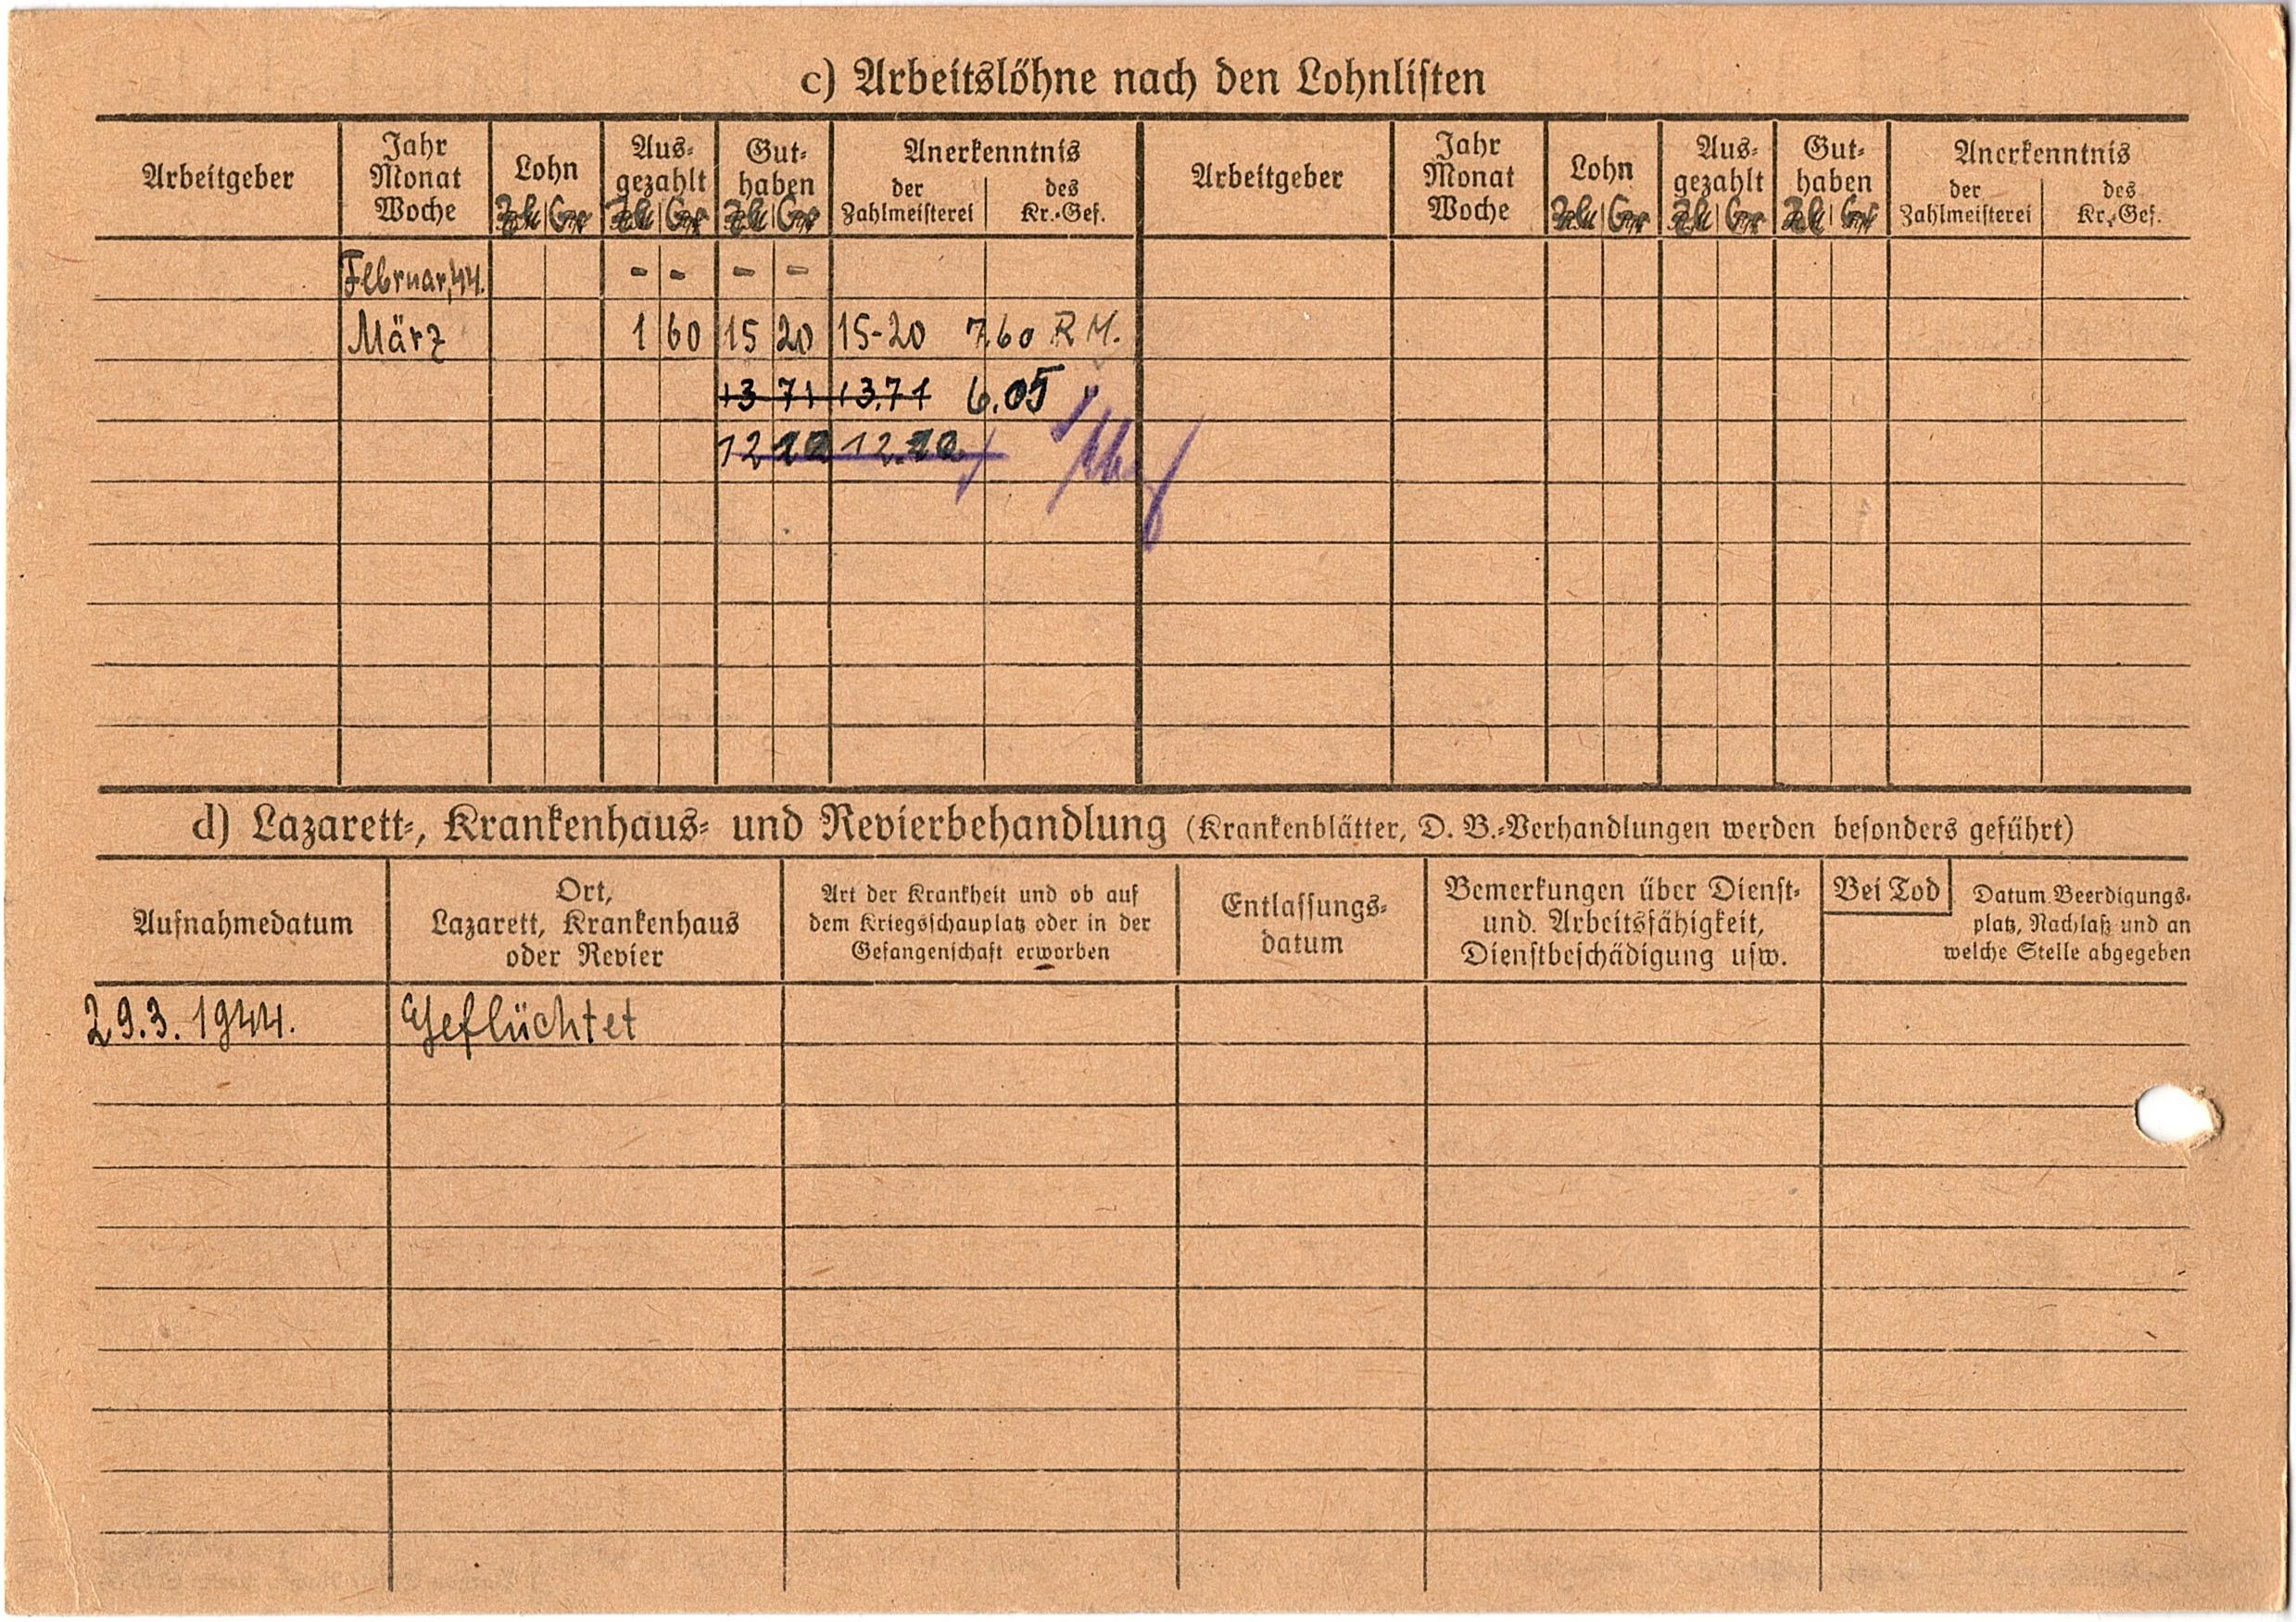 c) Arbeitslöhne nach den Lohnlisten
Arbeitgeber
Jahr
Monat
Woche
Lohn
Aus-
gezahlt
Gut-
haben
Anerkenntnis
der
Zahlmeisterei
des
Kr.-Gef.
Arbeitgeber
Jahr
Monat
Woche
Lohn
Aus-
gezahlt
Gut-
haben
Anerkenntnis
der
Zahlmeisterei
des
Kr.-Gef.
Februar, 44. - - - -
März 1 60 15 20 15-20 7,60 RM.
13 71 13.71 6.05 "
12 12.
d) Lazarett-, Krankenhaus- und Revierbehandlung (Krankenblätter, D. B.-Verhandlungen werden besonders geführt)
Aufnahmedatum
Ort,
Lazarett, Krankenhaus
oder Revier
Art der Krankheit und ob auf
dem Kriegsschauplatz oder in der
Gefangenschaft erworben
Entlassungs-
datum
Bemerkungen über Dienst-
und Arbeitsfähigkeit,
Dienstbeschädigung usw.
Bei Tod
Datum Beerdigungs-
platz, Nachlaß und an
welche Stelle abgegeben
29.3.1944. Geflüchtet